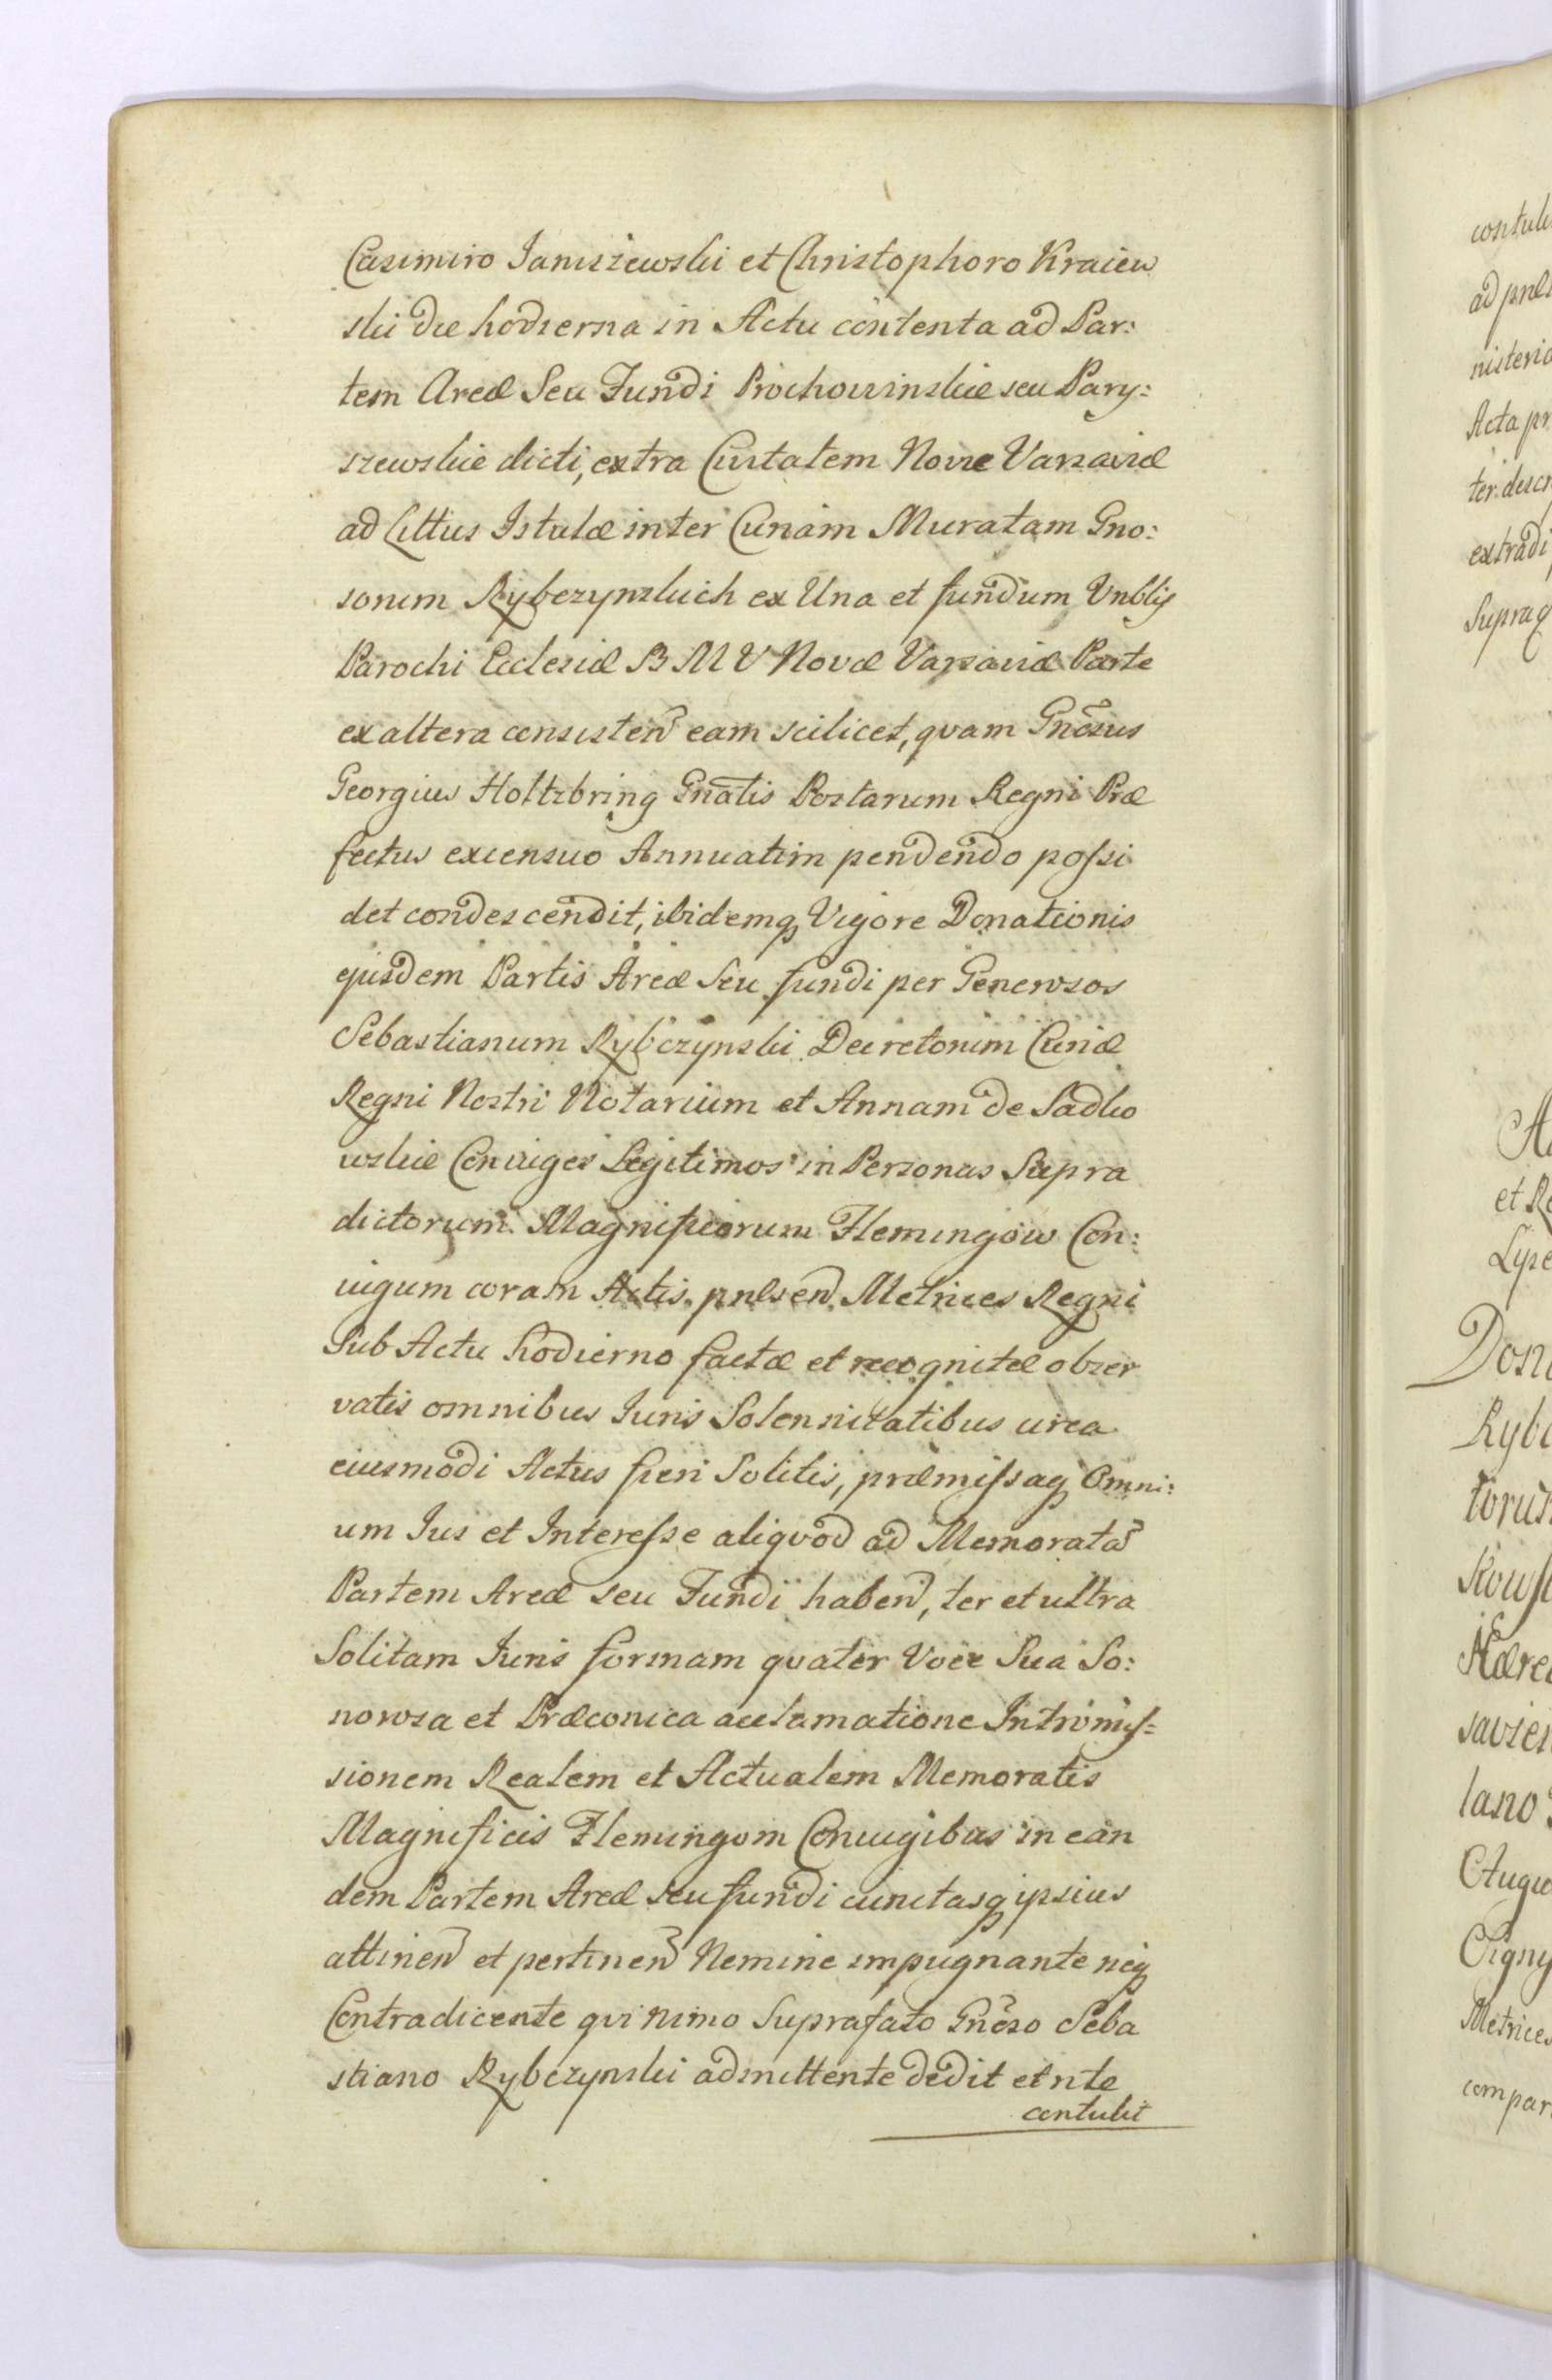 Casimiro Janiszewski et Christophoro Kraiew
ski die hodierna in Actu contenta ad Par:
tem Areæ Seu Fundi Prochowinskie seu Pary:
szewskie dicti, extra Civitatem Novæ Varsaviæ
ad Littus Istulæ inter Curiam Muratam Gno:
sorum Rybczynskich ex Una et fundum Vnblis
Parochi Ecclesiæ B M V Novæ Varsaviæ Parte
ex altera consisten eam scilicet, quam Gnosus
Georgius Holtzbring Gnalis Postarum Regni Præ
fectus ex censuo Annuatim pendendo possi
det condescendit, ibidemq Vigore Donationis
ejusdem Partis Areæ Seu fundi per Generosos
Sebastianum Rybczynski Decretorum Curiæ
Regni Nostri Notarium et Annam de Sadko
wskie Coniuges Legitimos in Personas Supra
dictorum Magnificorum Flemingow Con:
iugum coram Actis pnlsen Metrices Regni
Sub Actu hodierno factæ et recognitæ obser
vatis omnibus Juris Solennitatibus circa
eiusmodi Actus fieri Solitis, præmissaq Omni:
um Ius et Interesse aliquod ad Memorata
Partem Areæ seu Fundi haben, ter et ultra
Solitam Juris formam quater Voce Sua So:
norosa et Præconica acclamatione Intromis=
sionem Realem et Actualem Memoratis
Magnificis Flemingom Coniugibus in ean
dem Partem Areæ seu fundi cunctasq ipsius
attinen et pertinen Nemine impugnante neq
Contradicente qui nimo Suprafato Gnoso Seba
stiano Rybczynski admittente dedit et nte
contulit